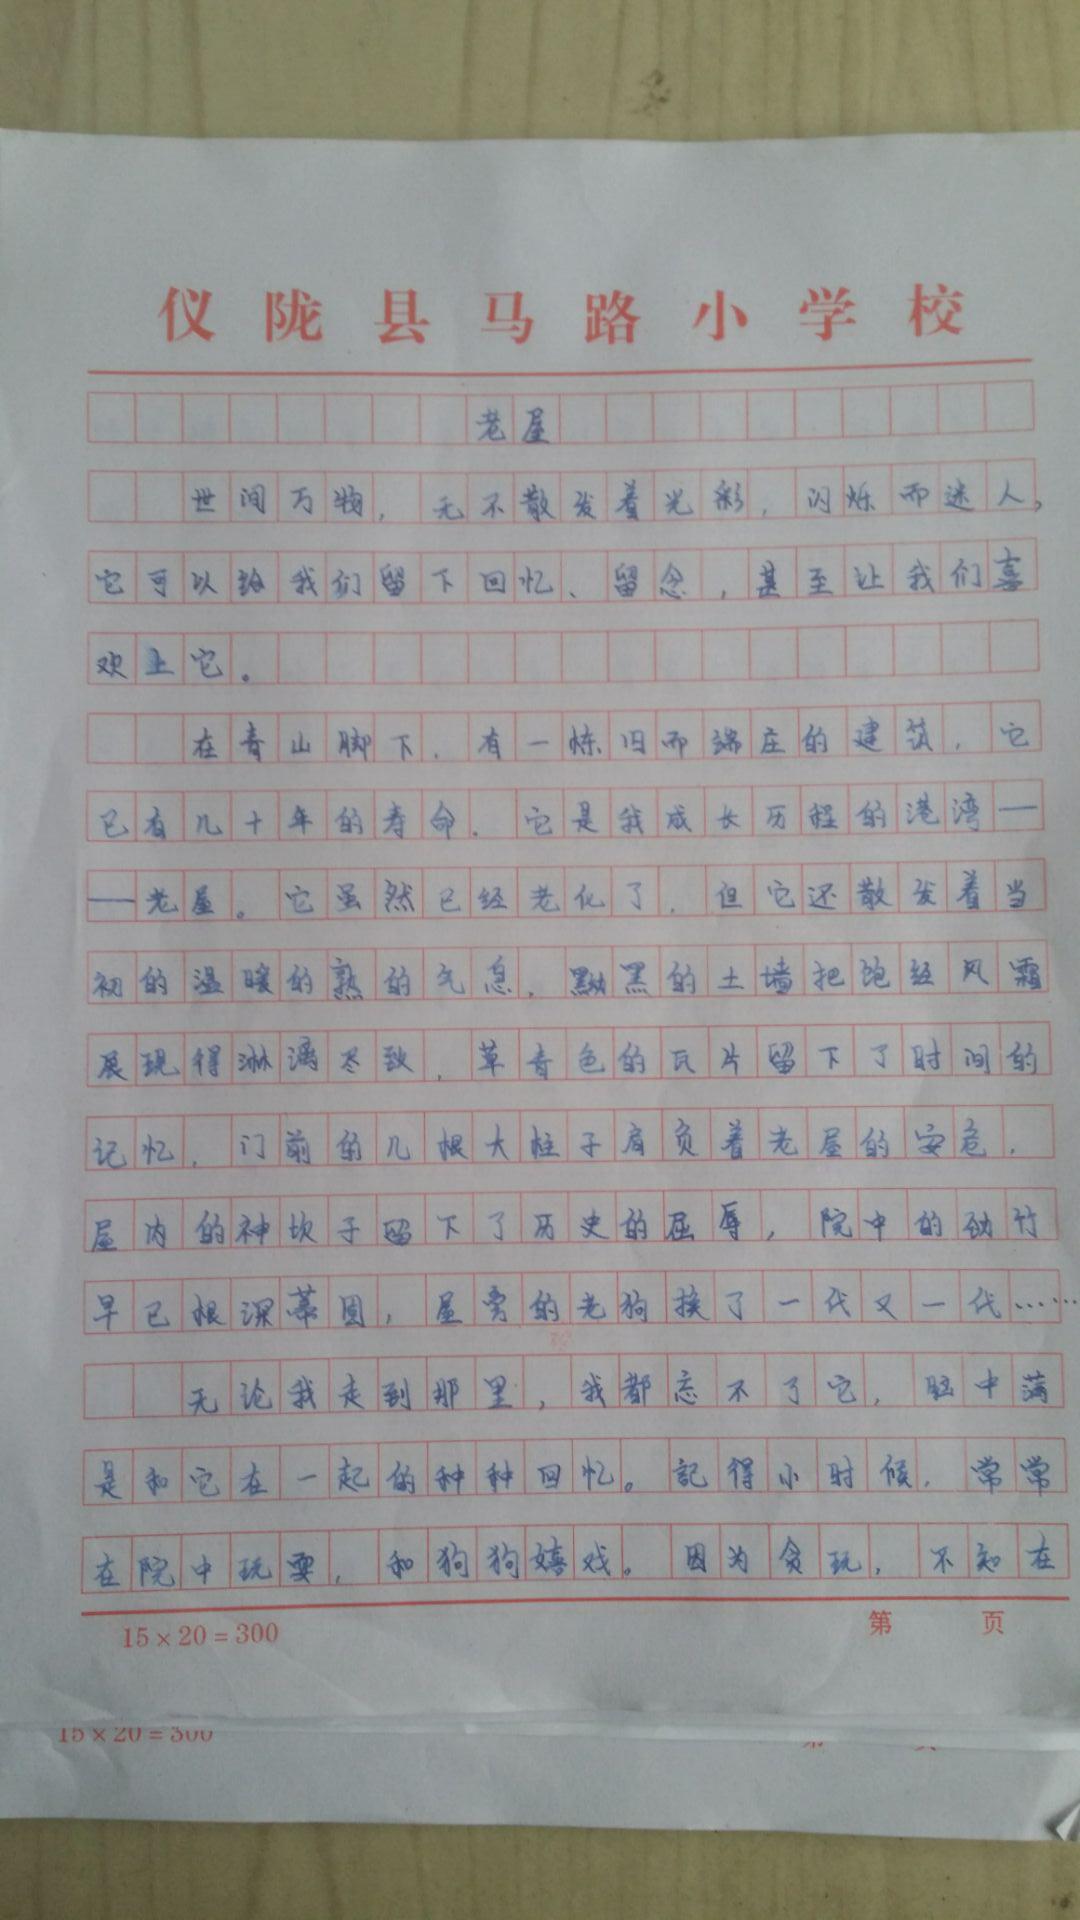 仪陇县马路小学校
老屋
世间万物，无不散发着光彩，闪烁而迷人，
它可以给我们留下回忆、留念，甚至让我们喜
欢上它。
在青山脚下，有一栋旧而端庄的建筑，它
已有几十年的寿命，它是我成长历程的港湾—
—老屋。它虽然已经老化了，但它还散发着当
初的温暖的熟的气息，黝黑的土墙把饱经风霜
展现得淋漓尽致，草青色的瓦片留下了时间的
记忆，门前的几根大柱子肩负着老屋的安危，
屋内的神坎子留下了历史的屈辱，院中的劲竹
早已根深蒂固，屋旁的老狗换了一代又一代……
无论我走到那里，我都忘不了它，脑中满
是和它在一起的种种回忆。記得小时候，常常
在院中玩耍，和狗狗嬉戏。因为贪玩，不知在
15×20=300
第 页
15×20=300